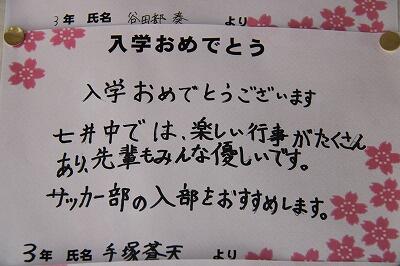 3年 氏名 谷田部 奏 より
入学おめでとう
入学おめでとうございます
七井中では、楽しい行事がたくさん
あり、先輩もみんな優しいです。
サッカー部の入部をおすすめします。
3年 氏名 手塚蒼天 より